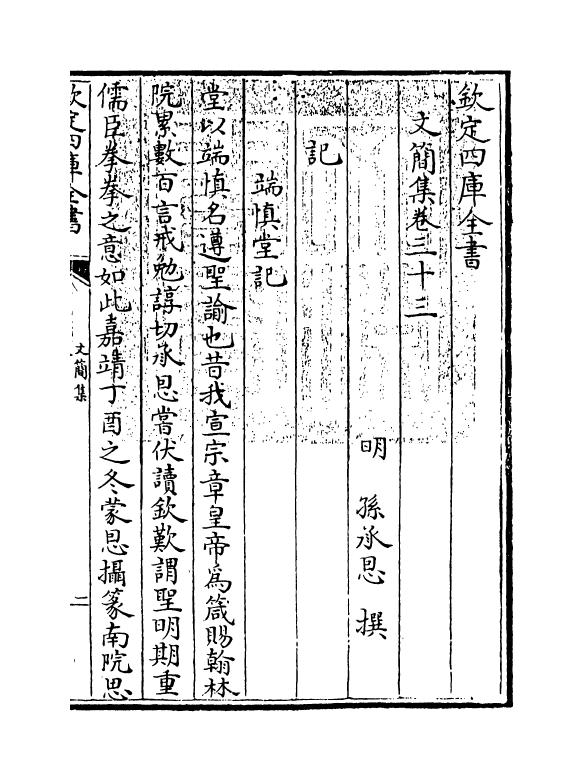 欽定四庫全書
文簡集卷三十三
明　孫承恩　撰
記
端慎堂記
堂以端慎名遵聖諭也昔我宣宗章皇帝為箴賜翰林
院累數百言戒勉諄切承恩嘗伏讀欽歎謂聖明期重
儒臣拳拳之意如此嘉靖丁酉之冬蒙恩攝篆南院思
欽定四庫全書
文簡集